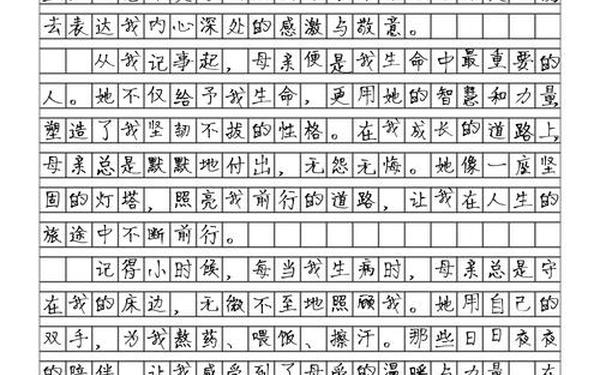 去表达我内心深处的感激与敬意。
从我记事起，母亲便是我生命中最重要的
人。她不仅给予我生命，更用她的智慧和力量
塑造了我坚韧不拔的性格。在我成长的道路上，
母亲总是默默地付出，无怨无悔。她像一座坚
固的灯塔，照亮我前行的道路，让我在人生的
旅途中不断前行。
记得小时候，每当我生病时，母亲总是守
在我的床边，无微不至地照顾我。她用自己的
双手，为我熬药、喂饭、擦汗。那些日日夜夜
的陪伴，让我感受到了母爱的温暖与力量。在